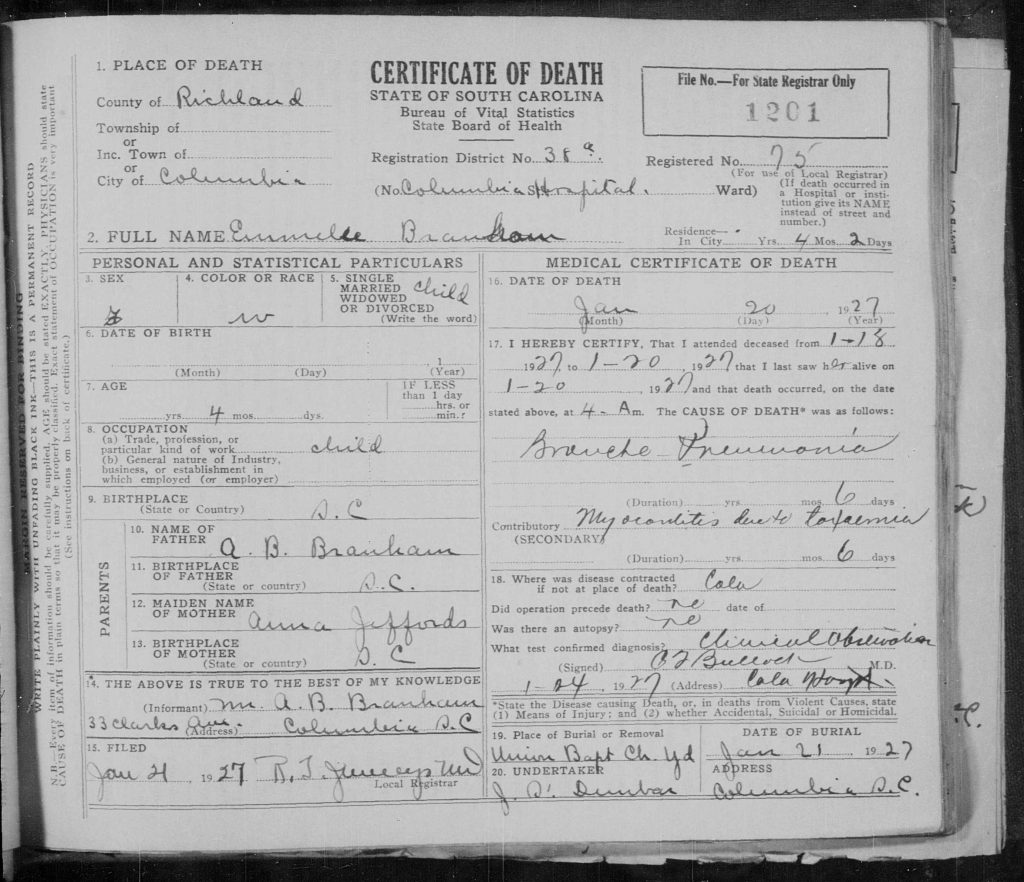 1. PLACE OF DEATH
County of Richland
Township of
or
Inc. Town of
or
City of Columbia
CERTIFICATE OF DEATH
STATE OF SOUTH CAROLINA
Bureau of Vital Statistics
State Board of Health
Registration District No. 38 a.
(No. Columbia St. Hospital. Ward)
File No.—For State Registrar Only
1201
Registered No. 75
(For use of Local Registrar)
(If death occurred in
a Hospital or insti-
tution give its NAME
instead of street and
number.)
2. FULL NAME Emmelee Branham
Residence—
In City Yrs. 4 Mos. 2 Days
PERSONAL AND STATISTICAL PARTICULARS
3. SEX
F
4. COLOR OR RACE
w
5. SINGLE
MARRIED
WIDOWED
OR DIVORCED
(Write the word)
child
6. DATE OF BIRTH
1
(Month) (Day) (Year)
7. AGE
yrs. 4 mos. dys.
IF LESS
than 1 day
hrs. or
min.?
8. OCCUPATION
(a) Trade, profession, or
particular kind of work child
(b) General nature of Industry,
business, or establishment in
which employed (or employer)
9. BIRTHPLACE
(State or Country) S. C
PARENTS
10. NAME OF
FATHER A. B. Branham
11. BIRTHPLACE
OF FATHER
(State or country) S. C.
12. MAIDEN NAME
OF MOTHER Anna Jeffords
13. BIRTHPLACE
OF MOTHER
(State or country) S. C
14. THE ABOVE IS TRUE TO THE BEST OF MY KNOWLEDGE
(Informant) Mr. A. B. Branham
33 Charles Ave. (Address) Columbia S. C
15. FILED
Jan 21 1927
Local Registrar
MEDICAL CERTIFICATE OF DEATH
16. DATE OF DEATH
Jan 20, 1927
(Month) (Day) (Year)
17. I HEREBY CERTIFY, That I attended deceased from 1-18
1927 to 1-20, 1927 that I last saw her alive on
1-20, 1927 and that death occurred, on the date
stated above, at 4-A m. The CAUSE OF DEATH* was as follows:
Broncho Pneumonia
(Duration) yrs. mos. 6 days
Contributory Myocarditis due to toxaemia
(SECONDARY)
(Duration) yrs. mos. 6 days
18. Where was disease contracted
if not at place of death? Cola
Did operation precede death? no date of
Was there an autopsy? no
What test confirmed diagnosis? Clinical Observation
(Signed) Bullock M.D.
1-24, 1927 (Address) Cola Hospt.
*State the Disease causing Death, or, in deaths from Violent Causes, state
(1) Means of Injury; and (2) whether Accidental, Suicidal or Homicidal.
19. Place of Burial or Removal
Union Bapt Ch. Yd
DATE OF BURIAL
Jan 21 1927
20. UNDERTAKER
Dunbar
ADDRESS
Columbia S. C.
MARGIN RESERVED FOR BINDING
WRITE PLAINLY WITH UNFADING BLACK INK—THIS IS A PERMANENT RECORD
N. B.—Every item of information should be carefully supplied. AGE should be stated EXACTLY. PHYSICIANS should state
CAUSE OF DEATH in plain terms so that it may be properly classified. Exact statement of OCCUPATION is very important
(See instructions on back of certificate.)